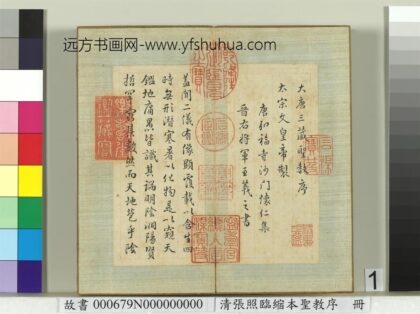 远方书画网-www.yfshuhua.com
大唐三藏聖教序
太宗文皇帝製
唐弘福寺沙門懷仁集
晉右將軍王羲之書
蓋聞二儀有像顯覆載以含生四
時無形潛寒暑以化物是以窺天
鑑地庸愚皆識其端明陰洞陽賢
哲罕窮其數然而天地苞乎陰
1
故書 000679N000000000 清張照臨縮本聖教序 冊